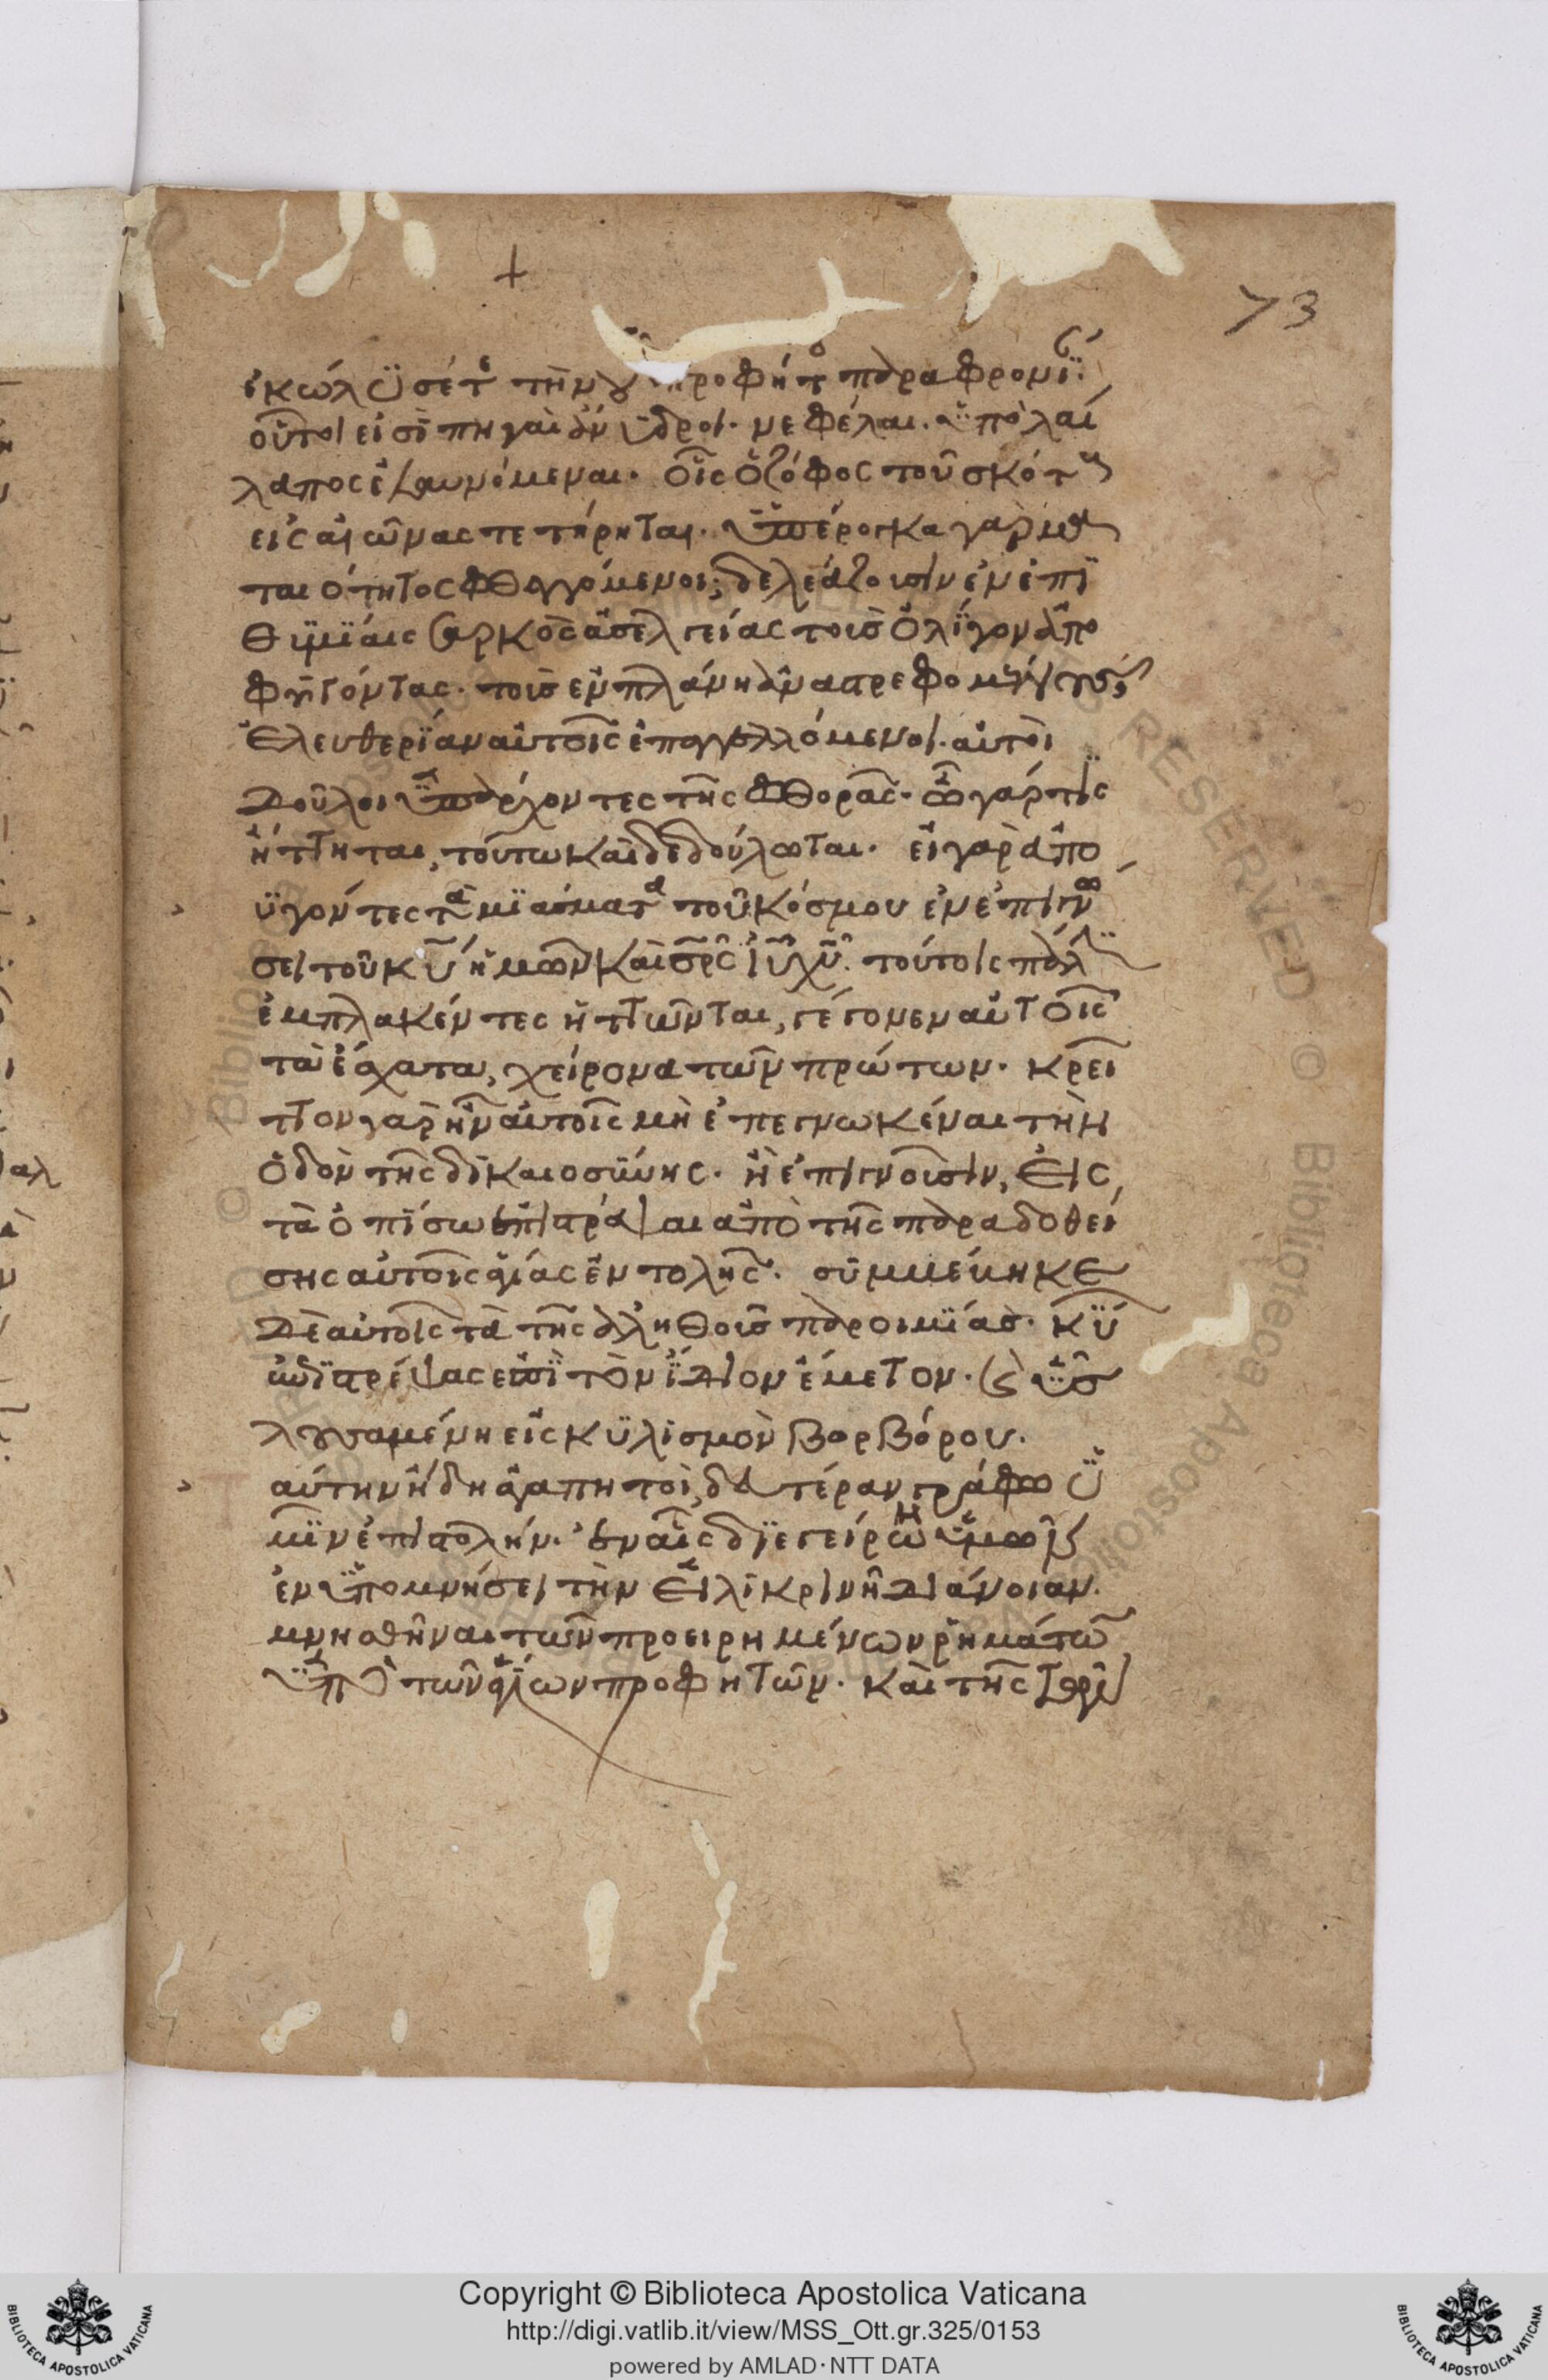 73
ἐκώλϋσέτ τὴν προφήτ παραφρονΐ.
οὗτοι εἰσῒ πηγαὶ ἄνϋδροι. νεφέλαι. ϋπὸ λαί
λαπος ἐλαυνόμεναι. οἷς ὁ ζόφος τοῦ σκότους
εἰς αἰῶνας τετήρηται. ϋπέροικα γὰρ μα
ταιότητος φθεγγόμενοι, δελεάζουσιν ἐν ἐπῒ
θϋμΐαις σαρκὸς ἀσελγείας τοὺς ὀλΐγον ἀπο
φϋγόντας. τοὺς ἐν πλάνη ἀναστρεφομένους,
ἐλευθερΐαν αὐτοῖς ἐπαγγελλόμενοι. αὐτοὶ
δοῦλοι ϋπάρχοντες τῆς φθορᾶς. ὧ γάρ τις
ἥττηται, τούτω καὶ δεδούλωται. εἰ γὰρ ἀπο
ϋγόντες τὰ μϊάσματα τοῦ κόσμου ἐν ἐπιγνώ
σει τοῦ κῡ ἡμῶν καὶ σρ̅ς ἰῡ χῡ. τούτοις πάλϊν
ἐμπλακέντες ἡττῶνται, γέγονεν αὐτοῖς
τὰ ἔσχατα, χείρονα τῶν πρώτων. κρεῖ
ττον γὰρ ἦν αὐτοῖς μὴ ἐπεγνωκέναι τὴν
ὁδὸν τῆς δϊκαιοσϋνης. ἢ ἐπιγνοῦσιν, εἰς
τὰ ὀπΐσω ἐπιστρέψαι ἀπὸ τῆς παραδοθεί
σης αὐτοῖς ἁγίας ἐντολῆς. σϋμβέβηκε
δὲ αὐτοῖς τὰ τῆς ἀληθοῦς παροιμΐας. κϋ
ων ἐπιστρέψας ἐπῒ τὸν ΐδιον ἔμετον. καὶ ϋς
λουσαμένη εἰς κϋλισμὸν βορβόρου.
αύτην ήδη ἀγαπητοὶ, δευτέραν γράφω ϋ
μῖν ἐπιστολήν. ἐν αἷς δϊεγείρω ϋμῶν
ἐν ϋπομνήσει τὴν εἰλϊκρινῆ διάνοιαν.
μνησθῆναι τῶν προειρημένων ῥημάτων
ϋπὸ τῶν ἁγΐων προφητῶν. καὶ τῆς
Copyright © Biblioteca Apostolica Vaticana
http://digi.vatlib.it/view/MSS_Ott.gr.325/0153
powered by AMLAD·NTT DATA